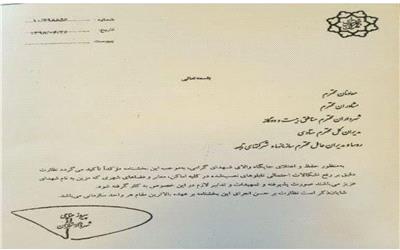 شماره: ۱۰/۴۹۸۸۵۶
تاریخ: ۱۳۹۸/۰۶/۲۶
پیوست
باسمه‌تعالی
معاونان محترم
مشاوران محترم
شهرداران محترم مناطق بیست و دوگانه
مدیران کل محترم ستادی
روسا و مدیران عامل محترم سازمانها و شرکتهای تابعه
به‌منظور حفظ و اعتلای جایگاه والای شهدای گرامی، به‌موجب این بخشنامه مؤکداً تأکید می‌گردد نظارت
دقیق بر رفع اشکالات احتمالی تابلوهای نصب‌شده در کلیه اماکن، معابر و فضاهای شهری که مزین به نام شهدای
عزیز می‌باشند صورت پذیرفته و تمهیدات و تدابیر لازم در این خصوص به کار گرفته شود.
شایان‌ذکر است نظارت بر حسن اجرای این بخشنامه بر عهده بالاترین مقام هر واحد سازمانی می‌باشد.
پیروز حناچی
شهردار تهران